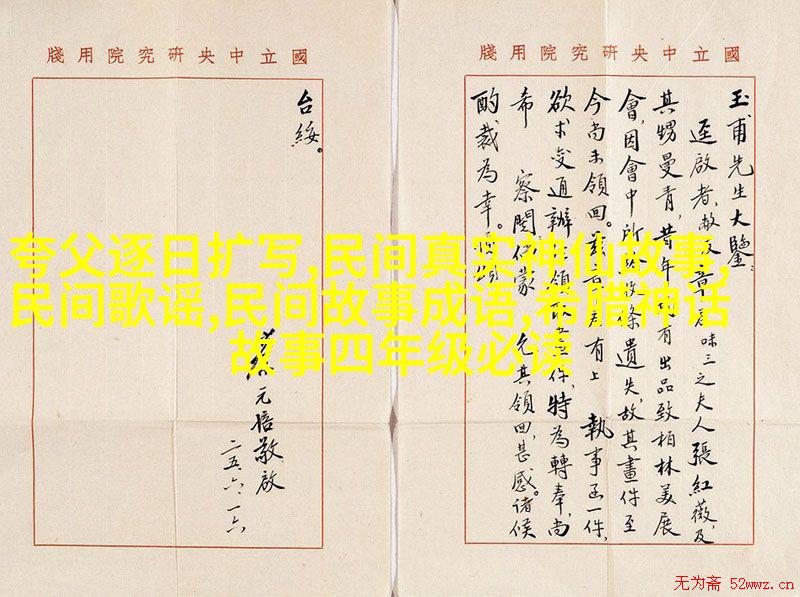 國立中央研究院用牋
玉甫先生大鑒:
逕啟者,故友章君味三之夫人張紅薇,及
其甥曼青,昔年有出品致柏林美展
會,因會中所收條遺失,故其畫件至
今尚未領回。有上 執事函一件,
欲求變通辦領畫件,特為轉奉,尚
希 察閱 允其領回,甚感。諸候
酌裁為幸。
國立中央研究院用牋
台綏。
元培敬啟
二五、六、一六
夸父逐日扩写,民间真实神仙故事,
民间歌谣,民间故事成语,希腊神话
故事四年级必读
无为斋 52wwz.cn